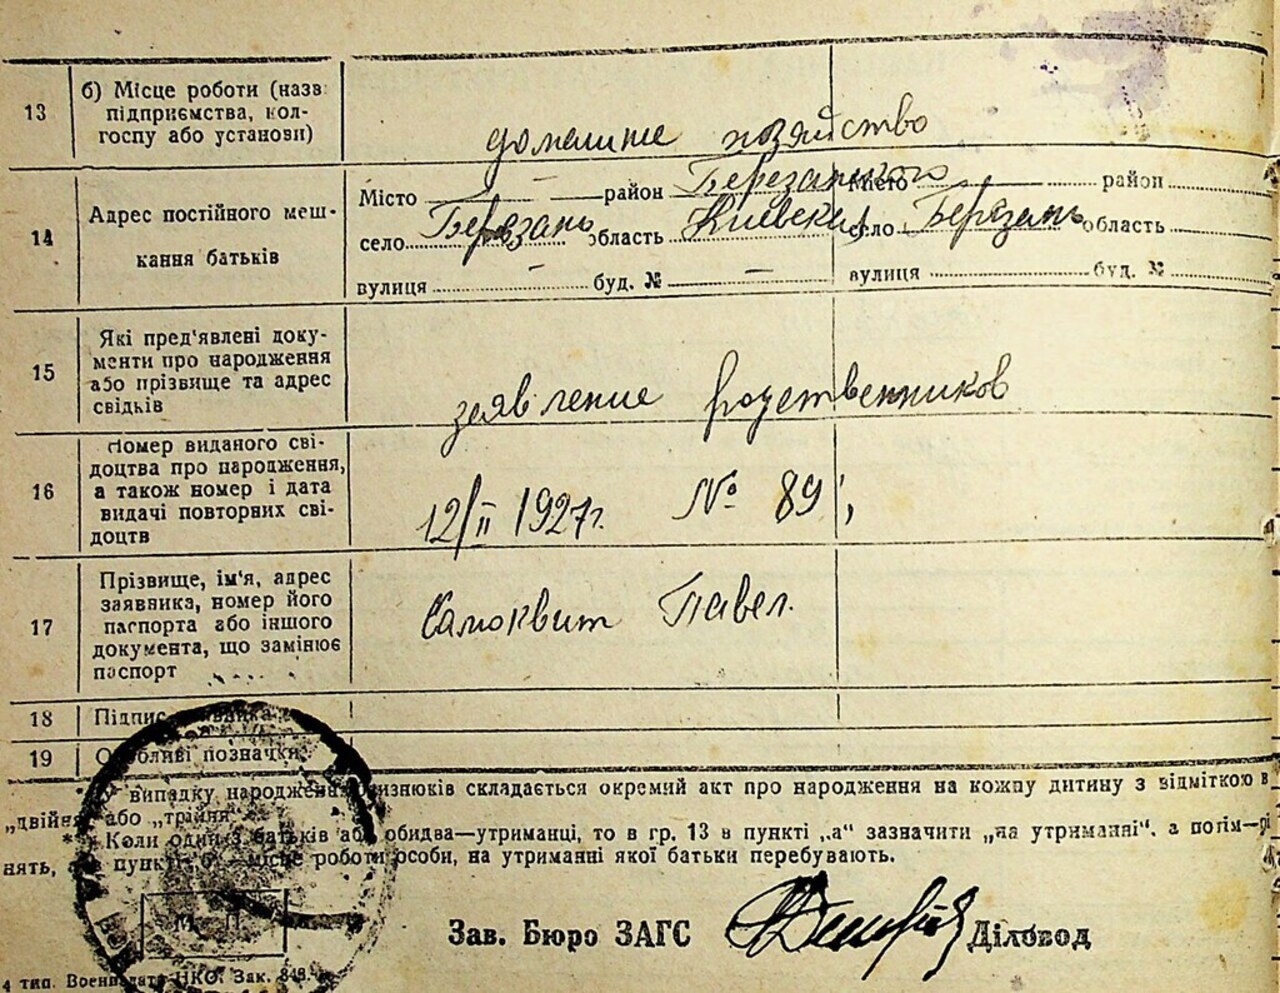 13 б) Місце роботи (назв
підприємства, кол-
госпу або установи)
домашне хозяйство
14 Адрес постійного меш-
кання батьків
Місто — район Березанського Місто район
село Березань область Киевская село Березань область
вулиця — буд. № — вулиця буд. №
15 Які пред'явлені доку-
менти про народження
або прізвище та адрес
свідків
заявление родственников
16 Номер виданого сві-
доцтва про народження,
а також номер і дата
видачі повторних сві-
доцтв
12/II 1927г. № 89,
17 Прізвище, ім'я, адрес
заявника, номер його
паспорта або іншого
документа, що замінює
паспорт
Самоквит Павел.
18 Підпис заявника
19 Особливі позначки
* У випадку народження близнюків складається окремий акт про народження на кожну дитину з відміткою в
„двійня" або „трійня".
** Коли один з батьків або обидва—утриманці, то в гр. 13 в пункті „а" зазначити „на утриманні". а потім—рі
нять, в пункті „б"—місце роботи особи, на утриманні якої батьки перебувають.
М. П.
Зав. Бюро ЗАГС Діловод
4 тип. Воениздата НКО. Зак. 848.